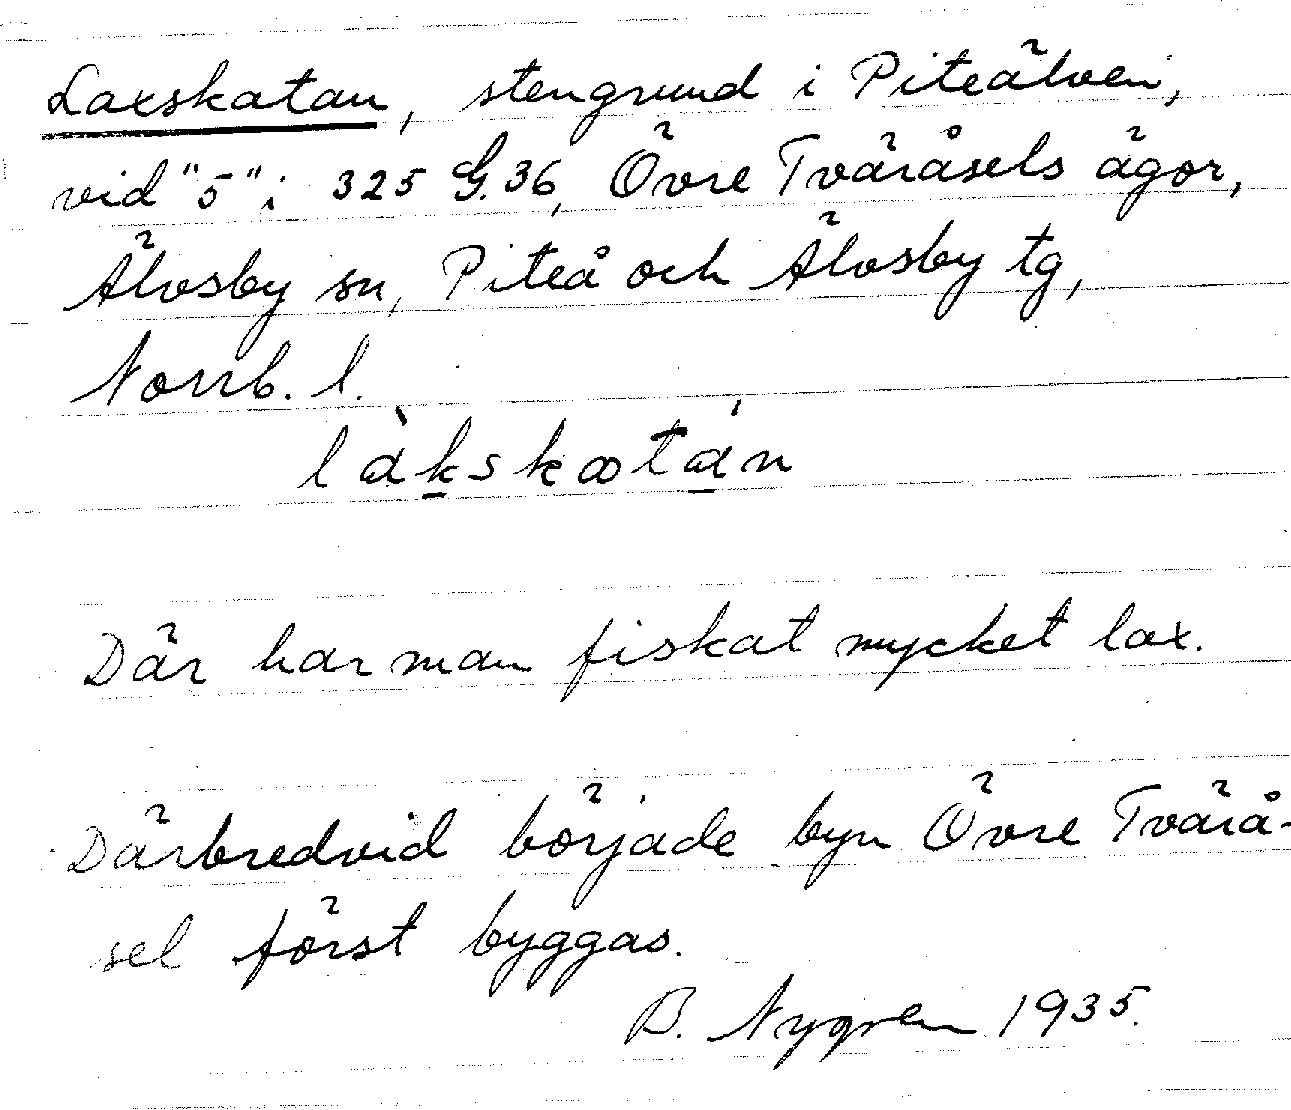 Laxskatan, stengrund i Piteälven,
vid "5" i 325 G.36, Övre Tväråsels ägor,
Älvsby sn, Piteå och Älvsby tg,
Norrb. l.
làkskatán
Där har man fiskat mycket lax.
Därbredvid började byn Övre Tvärå-
sel först byggas.
B. Nygren 1935.